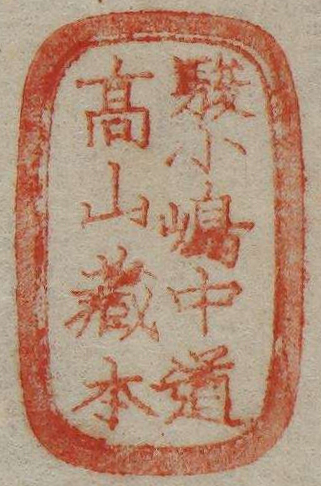 駿小嶋中道
髙山藏本